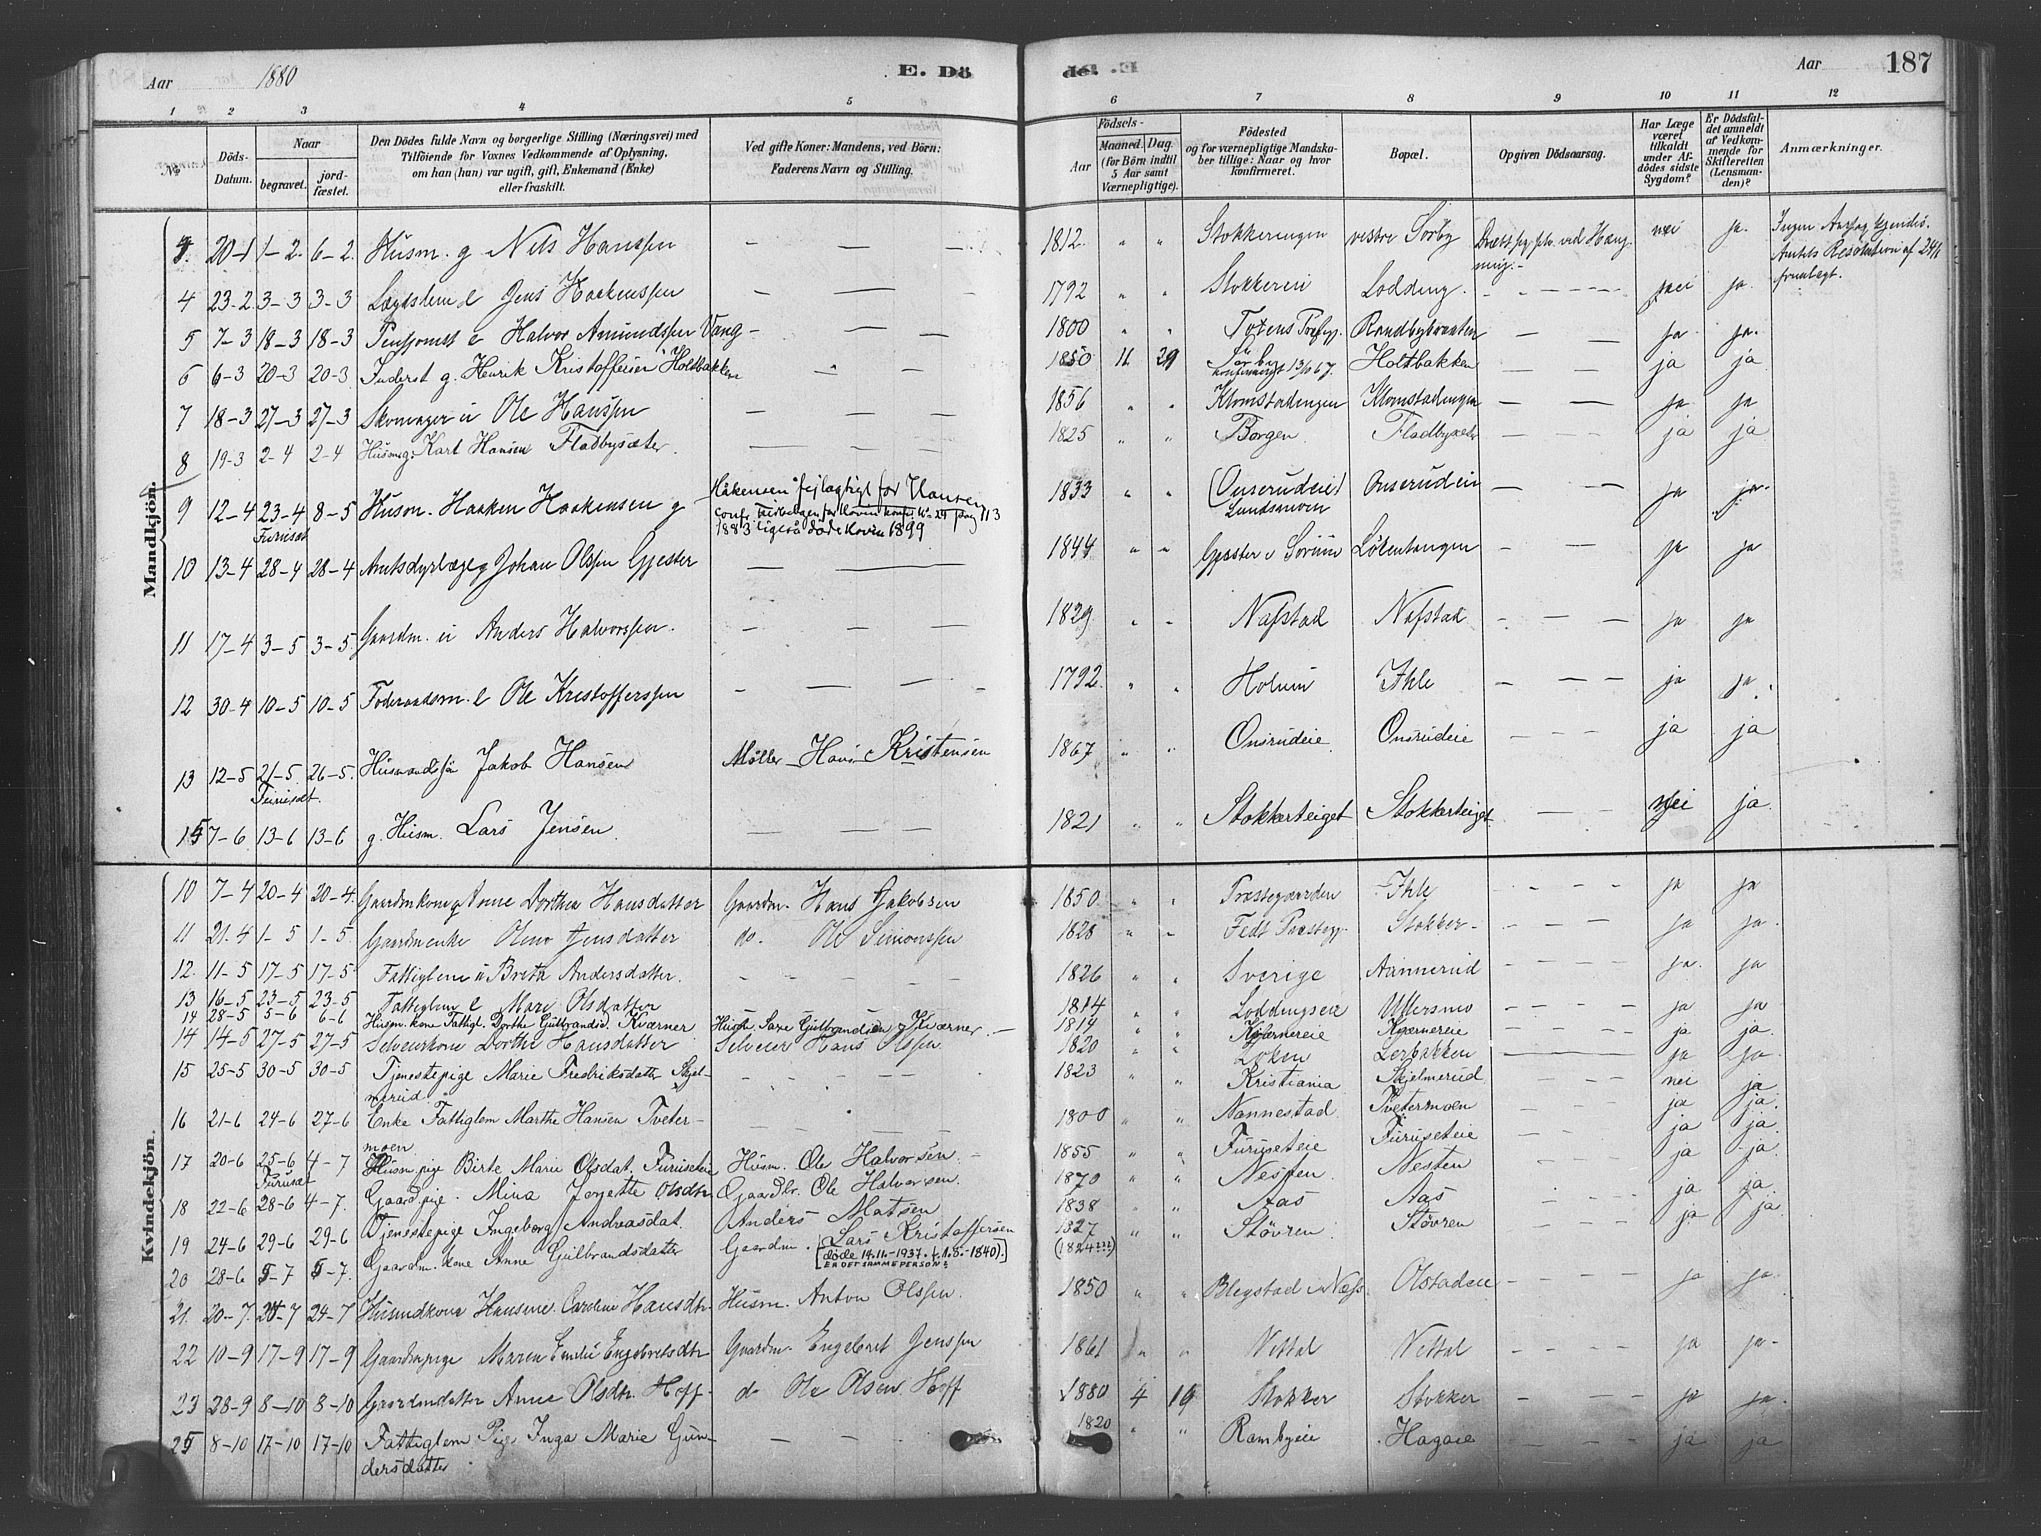 Aar 1880 E. Dö de. Aar 187
1 2 3 4 5 6 7 8 9 10 11 12
№ Döds-Datum. Naar begravet. jord-fæstet. Den Dödes fulde Navn og borgerlige Stilling (Næringsvei) med Tilföiende for Voxnes Vedkommende af Oplysning, om han (hun) var ugift, gift, Enkemand (Enke) eller fraskilt. Ved gifte Koner: Mandens, ved Börn: Faderens Navn og Stilling. Födsels- Aar Maaned. Dag. (for Börn indtil 5 Aar samt Værnepligtige). Födested og for værnepligtige Mandska-ber tillige: Naar og hvor konfirmeret. Bopæl. Opgiven Dödsaarsag. Har Læge været tilkaldt under Af-dödes sidste Sygdom? Er Dödsfal-det anmeldt af Vedkom-mende for Skifteretten (Lensman-den)? Anmærkninger.
Mandkjön.
20-1 1-2 6-2 Husm. g Nils Hanssen — — — 1812 " " Stokkeringen vestre Sørby ved Hæng-ning. nei ja.
4 23-2 3-3 3-3 Lægdslem e Jens Haakenssen — — — 1792 " " Stokkerei Lodding - - - nei ja.
5 7-3 18-3 18-3 Pensionist e Halvor Amundssen Vang — — 1800 " " Totens Præstg. Randbybraaten — — ja ja.
6 6-3 20-3 20-3 Inderst g. Henrik Kristoffersen Holtbakken " 1850 11 29 Sørby konfirmeret 13/10 67. Holtbakken — — ja ja
7 18-3 27-3 27-3 Skomager u Ole Hanssen — — — 1856 " " Klomstadengen Klomstadengen — — ja ja
8 19-3 2-4 2-4 Husm g. Karl Hansen Fladbysæter. — — — 1825 " " Borgen Fladbysæter — — ja ja
9 12-4 23-4 Furuset 8-5 Husm. Haaken Haakensen g — Håkensen fejlagtigt for Hansen 1883 ligeså døde Hovin 1899 1833 " " (Onsrudeie) Lundsmoen Onsrudeie — — ja ja.
10 13-4 28-4 28-4 Amtsdyrlæge g Johan Olssen Gjester — — 1844 " " Gjester i Sørum Løkentangen — — ja ja
11 17-4 3-5 3-5 Gaardm. u Anders Halvorssen. — — — 1829 " " Nafstad Nafstad — — — ja ja
12 30-4 10-5 10-5 Føderaadsm. e Ole Kristofferssen — — — 1792 " " Holum Ihle — — — ja ja.
13 12-5 21-5 Furuset. 26-5 Husmandssøn Jakob Hansen Møller Hans Kristensen 1867 " " Onsrudeie. Onsrudeie — — ja ja
15 7-6 13-6 13-6 g. Husm. Lars Jensen. — — — 1821 " " Stokkerteiget Stokkerteiget — — nei ja.
Kvindekjön.
10 7-4 20-4 20-4 Gaardmkone g Anne Dorthea Hansdatter Gaardm. Hans Jakobsen 1850 " " Præstegaarden Ihle - - - - ja ja
11 21-4 1-5 1-5 Gaardmenke Olene Jensdatter do. Ole Simonssen 1828 " " Fedt Præsteg. Stokker - — — ja ja.
12. 11-5 17-5 17-5 Fattiglem u Brita Andersdatter. - - - 1826 " " Sverige Aannerud - - - - ja. ja
13 16-5 23-5 23-5 Fattiglem e Mari Olsdatter 1814 " " Loddingseie Ullersmo - - - ja ja
14 28-5 5-6 6-6 Husm. kone Fattigl. Dorthe Gulbrandsd. Kværner Gulbrandsen Kværner — 1814 " " Kværnereie Kværnereie - - - ja ja.
14 14-5 27-5 27-5 Selveierkone Dorthe Hansdatter Selveier Hans Olssen 1820 " " Løken Lerbakken — — — ja ja.
15 25-5 30-5 30-5 Tjenestepige Marie Fredriksdatter Skjel-
merud - - - - 1823 " " Kristiania Skjelmerud. - - - nei ja
16 21-6 24-6 27-6 Enke Fattiglem Marthe Hansen Tveter-
moen - - - - 1800 " " Nannestad Tvetermoen - - - ja ja.
17 20-6 25-6 Furuset 4-7 Husm. pige Birte Marie Olsdat. Furuseteie Husm. Ole Halvorsen. 1855 " " Furuseteie Furuseteie - - ja ja.
18 22-6 28-6 4-7. Gaardpige. Mina Jorgette Olsdtr Gaardbr. Ole Halvorsen. 1870 " " Nesten Nesten - - ja ja.
19 24-6 29-6 29-6 Tjenestepige Ingeborg Andreasdat. Anders Matsen 1838 " " Aas Aas - - ja ja
20 28-6 5-7 5-7. Gaardm. kone Anne Gulbrandsdatter Gaardm. Lars Kristoffersen [døde 14.11.-1937. f. 1.8.-1840). ER DET SAMME PERSON? 1827 (1824???) " " Støvren. Støvren - - - ja ja.
21. 20-7. 24-7 24-7 Husmdkone Hansine Caroline Hansdtr. Husm. Anton Olssen. 1850 " " Blegstad i Næss Olstadeie - - - ja ja.
22 10-9 17-9 17-9 Gaardmpige Maren Emilie Engebretsdtr Gaardm. Engebret Jenssen 1861 " " Nettal Nettal - - - ja ja-
23 28-9 8-10 8-10 Gaardmdatter Anne Olsdtr. Hoff - do Ole Olsen Hoff 1880 4 19 Stokker Stokker - — - ja ja.
25 8-10 17-10 17-10 Fattiglem Pige Inga Marie Gun-
dersdatter — — — 1820 " " Rambyeie Hagaeie - - - ja ja